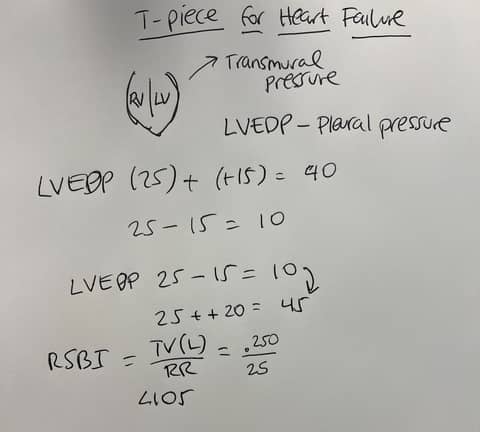 T-piece for Heart Failure
RV LV
→ Transmural
pressure
LVEDP - Plaural pressure
LVEDP (25) + (+15) = 40
25 - 15 = 10
LVEDP 25 - 15 = 10
25 + + 20 = 45
RSBI = TV(L) / RR = .250 / 25
<105